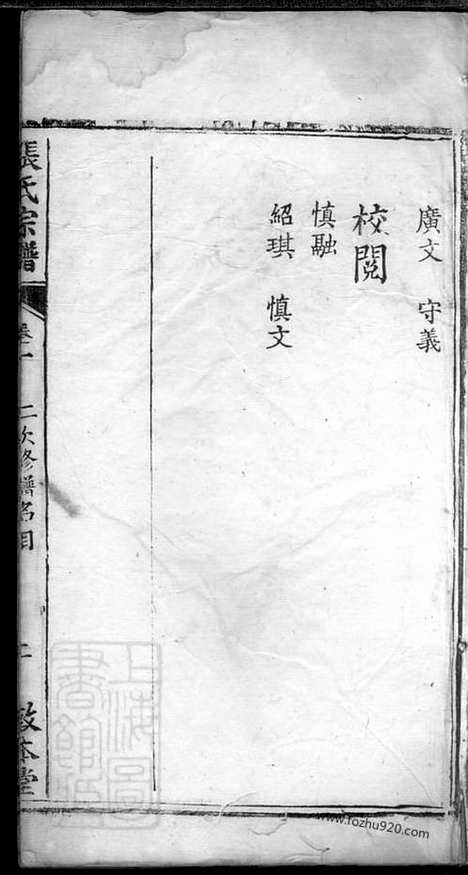 廣文 守義
校閱
慎融
紹琪 慎文
張氏宗譜
卷一
二次修譜名目
二
敦本堂
上海圖書館藏
www.fozhu920.com